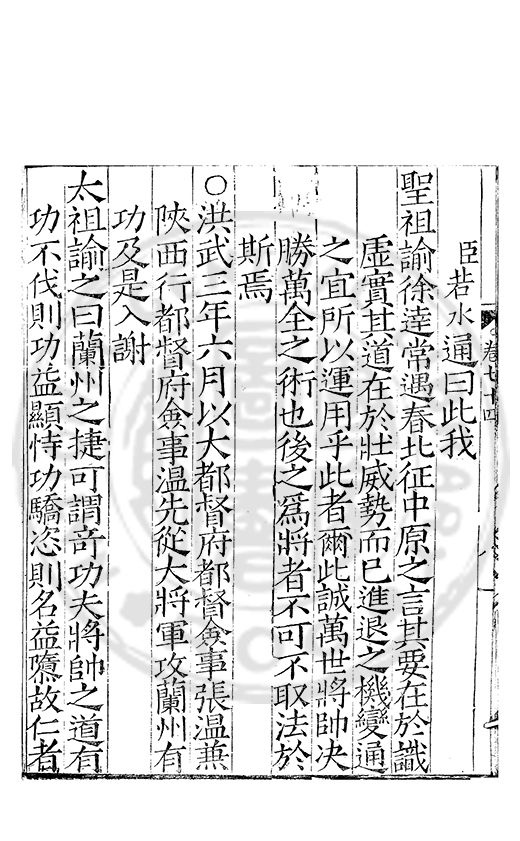 卷七十四
臣若水通曰此我
聖祖諭徐逹常遇春北征中原之言其要在於識
虛實其道在於壯威勢而已進退之機變通
之宜所以運用乎此者爾此誠萬世將帥决
勝萬全之術也後之爲將者不可不取法於
斯焉
○洪武三年六月以大都督府都督僉事張溫兼
陝西行都督府僉事溫先從大將軍攻蘭州有
功及是入謝
太祖諭之曰蘭州之捷可謂竒功夫將帥之道有
功不伐則功益顯恃功驕恣則名益隳故仁者